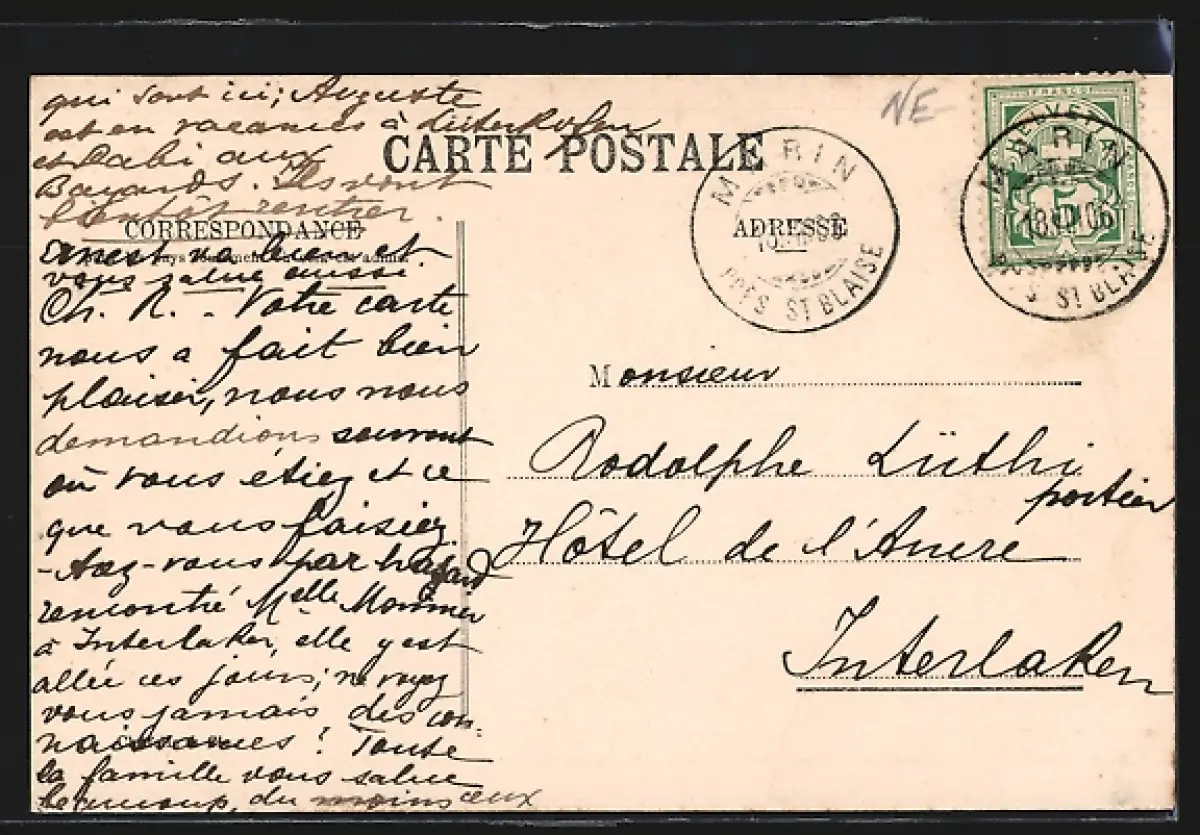 qui sont ici; Auguste
est en vacances à Lüterkofen
et Gabi aux
Bayards. Ils vont
bientôt rentrer.
CARTE POSTALE
NE
CORRESPONDANCE
ADRESSE
Ernest va bien et
vous salue aussi.
Ch. R. - Votre carte
nous a fait bien
plaisir, nous nous
demandions souvent
où vous étiez et ce
que vous faisiez.
- Avez-vous par hasard
rencontré Melle Mommer
à Interlaken, elle y est
allée ces jours; ne voyez
vous jamais des con-
naissances? Toute
la famille vous salue
beaucoup, du moins ceux
Monsieur
Rodolphe Lüthi
portier
Hôtel de l'Ancre
Interlaken
MARIN
PRÈS ST BLAISE
FRANCO
HELVETIA
5
MARIN
18.VII.06
PRÈS ST BLAISE